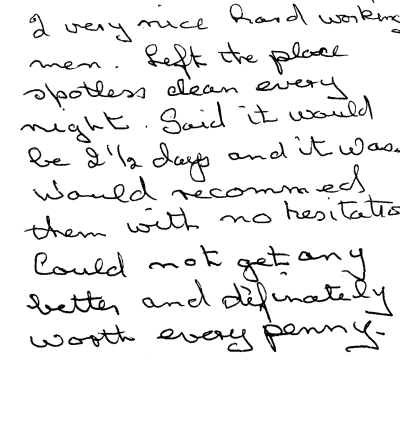 2 very nice hard working
men. Left the place
spotless clean every
night. Said it would
be 2 1/2 days and it was.
Would recommed
them with no hesitatio
Could not get any
better and definately
worth every penny.